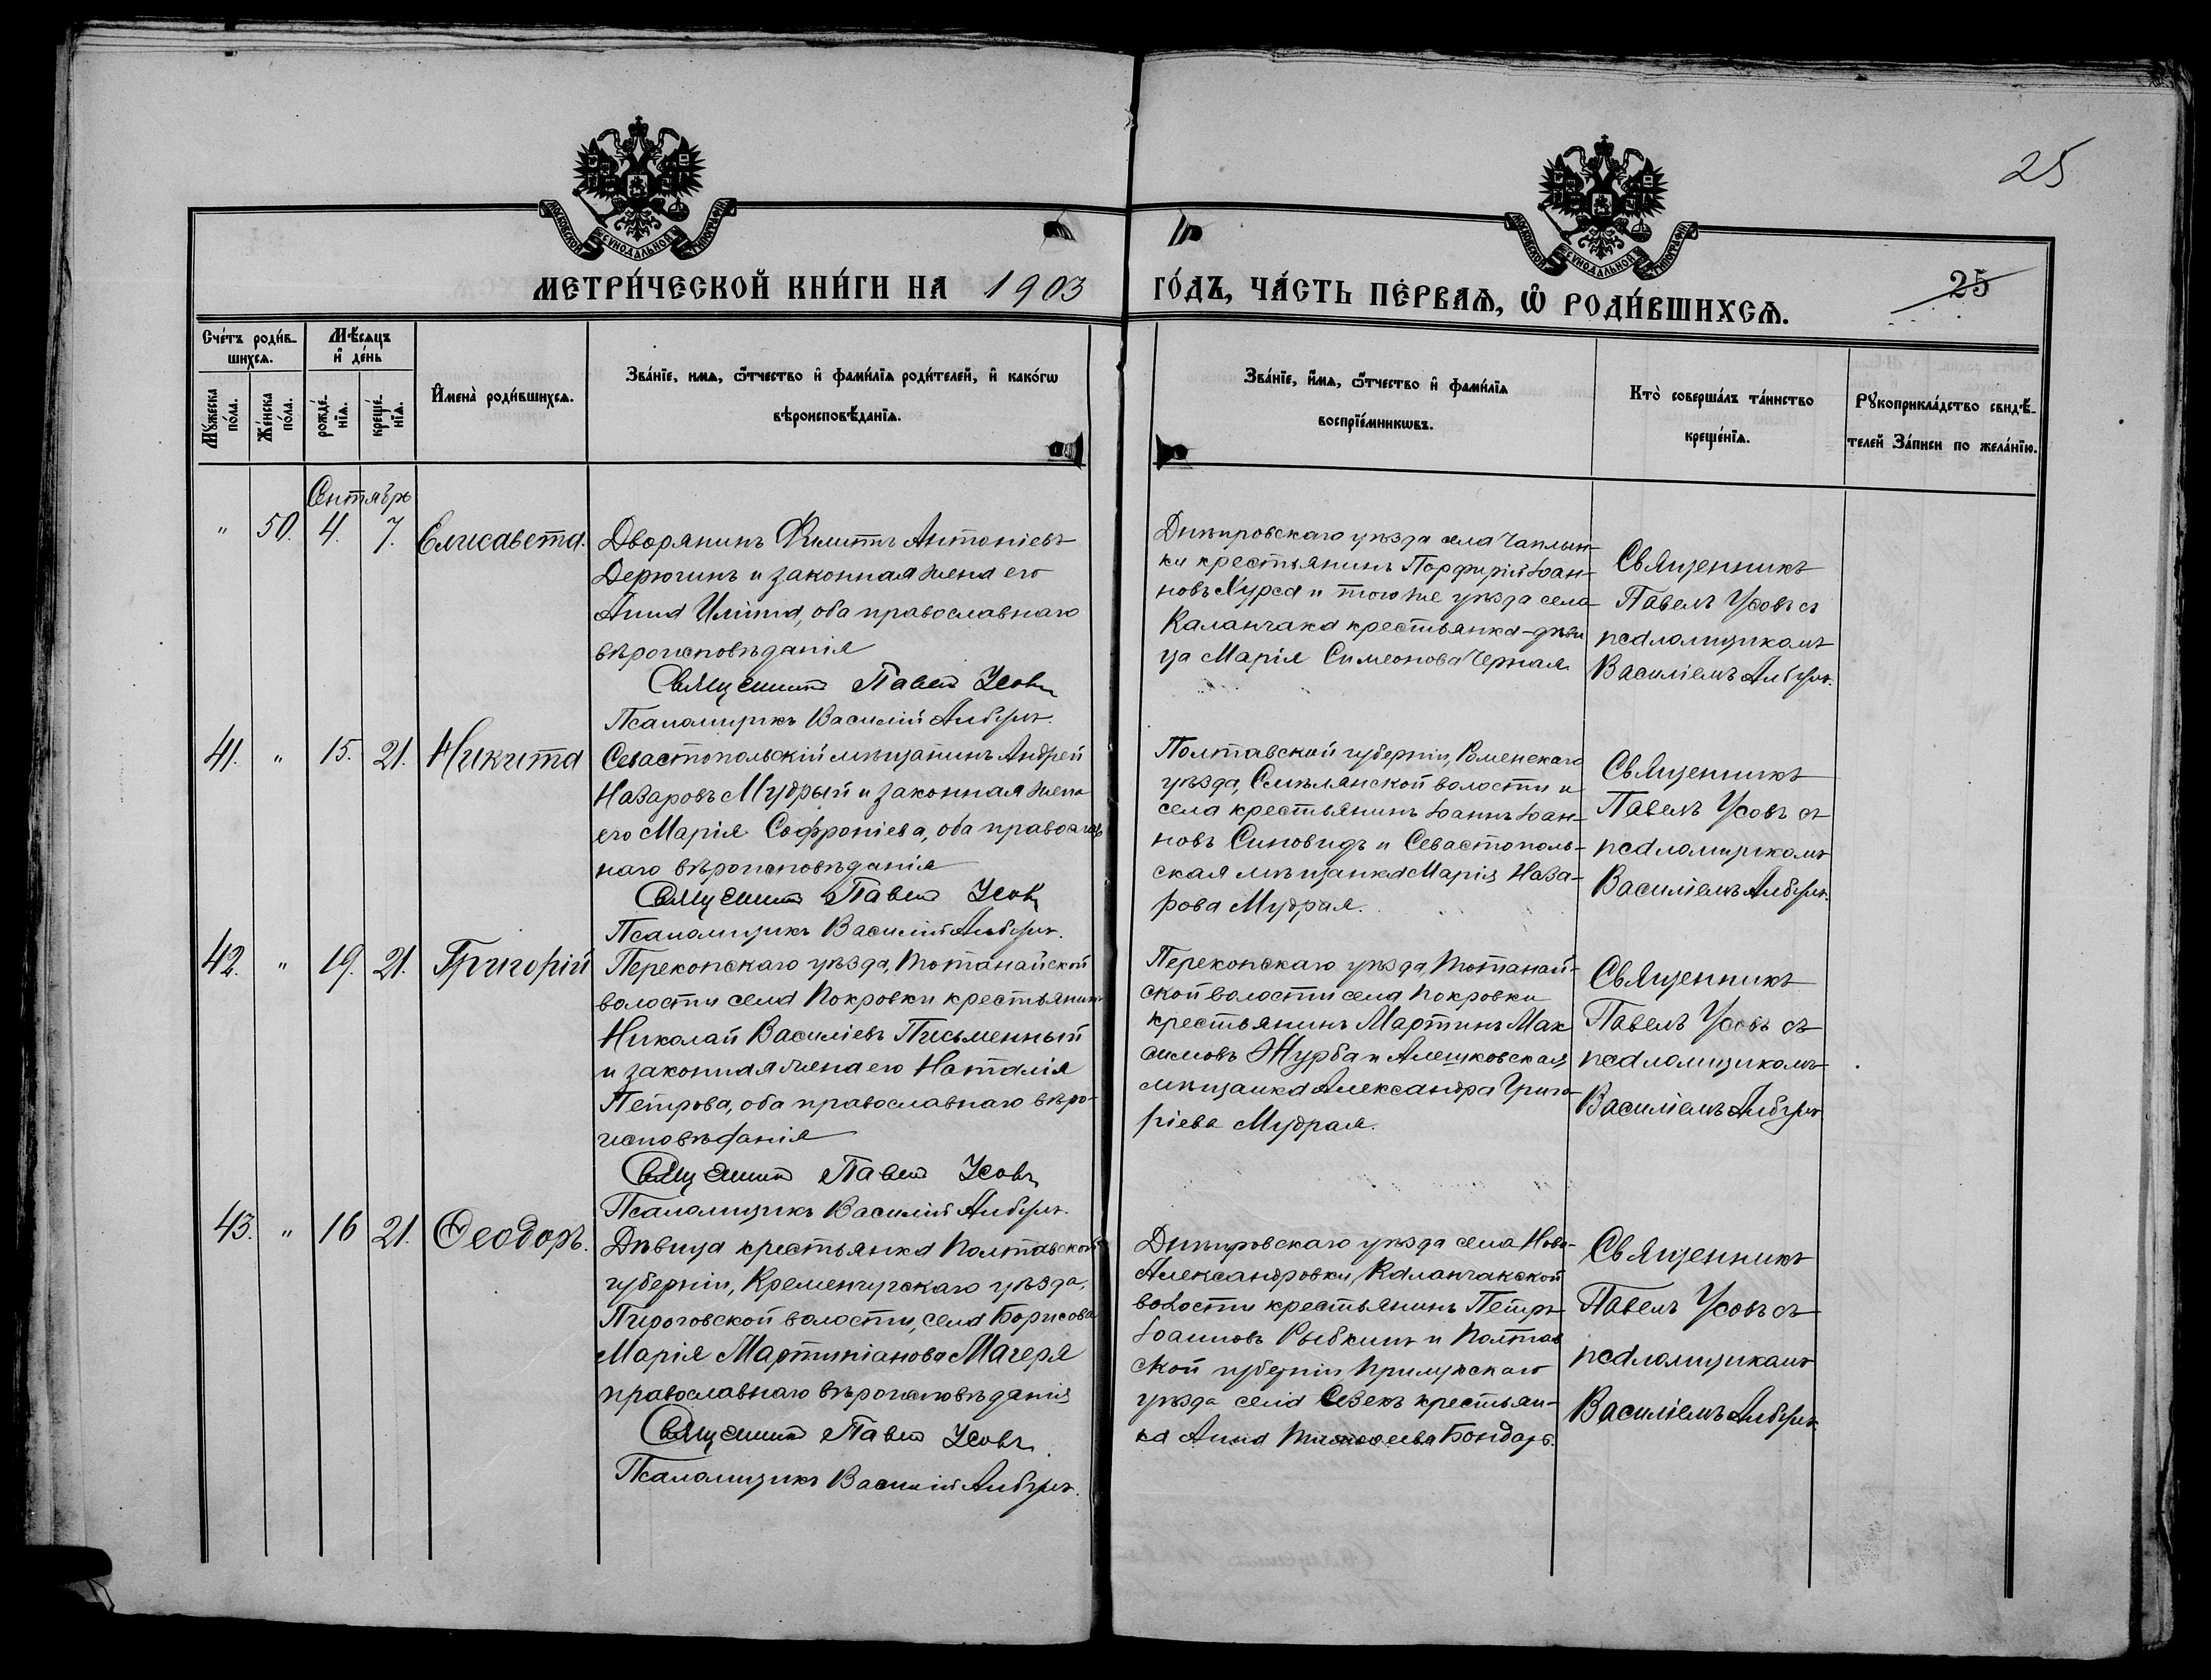 25
МОСКОВСКОЙ СѴНОДАЛЬНОЙ ТИПОГРАФІИ
МОСКОВСКОЙ СѴНОДАЛЬНОЙ ТИПОГРАФІИ
МЕТРИ́ЧЕСКОЙ КНИ́ГИ НА 1903 ГО́ДЪ, ЧА́СТЬ ПЕ́РВАѦ, Ѡ҆ РОДИ́ВШИХСѦ.
25
Сче́тъ роди́в-
шихсѧ.
Мѣ́сѧцъ
и҆ де́нь
Мꙋ́жеска
по́ла.
Же́нска
по́ла.
рожде́-
нїѧ.
креще́-
нїѧ.
И҆мена̀ роди́вшихсѧ.
Зва́нїе, и҆мѧ, ѻ҆́тчество и҆ фами́лїѧ роди́телей, и҆ како́гѡ
вѣроисповѣ́данїѧ.
Зва́нїе, и҆́мѧ, ѻ҆́тчество и҆ фами́лїѧ
воспрїе́мникѡвъ.
Кто̀ соверша́лъ та́инство
креще́нїѧ.
Рꙋкоприкла́дство свидѣ́-
телей за́писи по жела́нїю.
Сентябрь
" 50. 4. 7. Елисавета.
Дворянинъ Филиппъ Антоніевъ
Дерюгинъ и законная жена его
Анна Ильина, оба православнаго
вѣроисповѣданія
Священникъ Павелъ Усовъ
Псаломщикъ Василій
Днѣпровскаго уѣзда села Чаплын-
ки крестьянинъ Порфирій Іоан-
новъ Хурса и того же уѣзда села
Каланчака крестьянка-дѣви
ца Марія Симеонова Черная
Священникъ
Павелъ Усовъ съ
псаломщикомъ
Василіемъ
41. " 15. 21. Никита
Севастопольскій мѣщанинъ Андрей
Назаровъ Мудрый и законная жена
его Марія Софроніева, оба православ
наго вѣроисповѣданія
Священникъ Павелъ Усовъ
Псаломщикъ Василій
Полтавской губерніи, Роменскаго
уѣзда, Смѣлянской волости и
села крестьянинъ Іоаннъ Іоан-
новъ Синовидъ и Севастополь-
ская мѣщанка Марія Наза-
рова Мудрая.
Священникъ
Павелъ Усовъ съ
псаломщикомъ
Василіемъ
42. " 19. 21. Григорій
Перекопскаго уѣзда, Тотанайской
волости села Покровки крестьянинъ
Николай Василіевъ Письменный
и законная жена его Наталія
Петрова, оба православнаго вѣро-
исповѣданія
Священникъ Павелъ Усовъ
Псаломщикъ Василій
Перекопскаго уѣзда, Тотанай-
ской волости села Покровки
крестьянинъ Мартинъ Мак
симовъ Журба и Алешковская
мѣщанка Александра Григо-
ріева Мудрая.
Священникъ
Павелъ Усовъ съ
псаломщикомъ
Василіемъ
43. " 16 21. Ѳеодоръ.
Дѣвица крестьянка Полтавской
губерніи, Кременчугскаго уѣзда,
Пироговской волости, села Борисова
Марія Мартиніанова Магеря
православнаго вѣроисповѣданія
Священникъ Павелъ Усовъ.
Псаломщикъ Василій
Днѣпровскаго уѣзда села Ново-
Александровки, Каланчакской
волости крестьянинъ Петръ
Іоанновъ Рыбкинъ и Полтав
ской губерніи Прилукскаго
уѣзда села крестьян-
ка Анна Бондарь.
Священникъ
Павелъ Усовъ съ
псаломщикомъ
Василіемъ